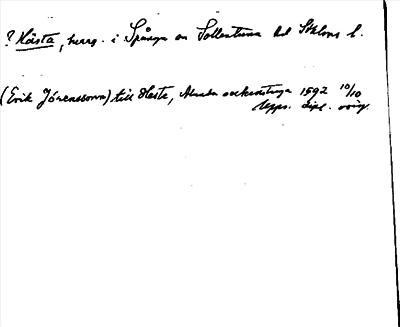 ? Hästa, herrg. i Spånga sn Sollentuna hd Sthlms l.
(Erik Jönensson) till Hesta, sockenstuga 1592 10/10
Upps. dipl. orig.